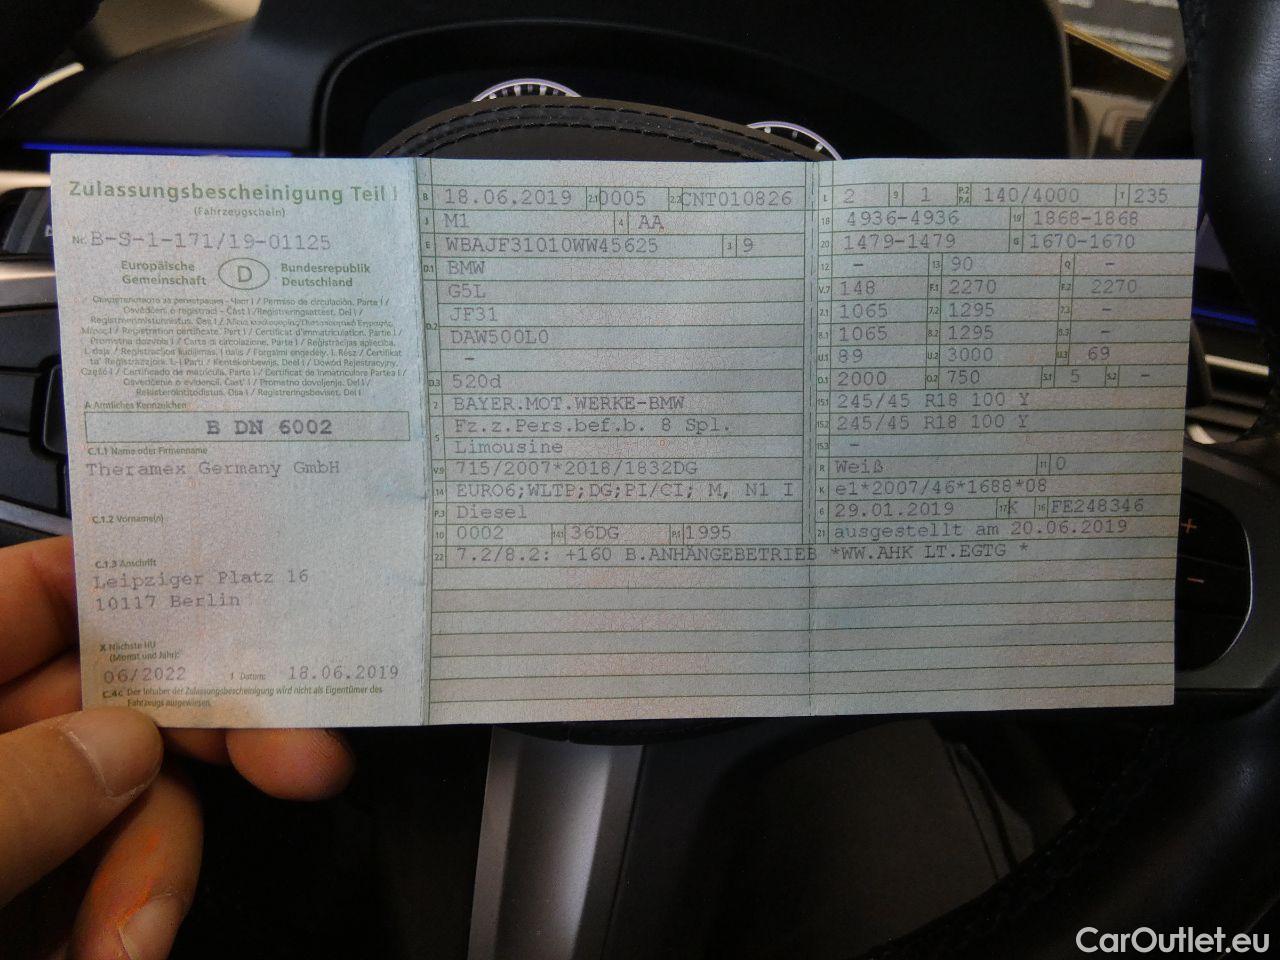 Zulassungsbescheinigung Teil I
(Fahrzeugschein)
Nr. B-S-1-171/19-01125
Europäische Gemeinschaft
D
Bundesrepublik Deutschland
A Amtliches Kennzeichen
B DN 6002
C.1.1 Name oder Firmenname
Theramex Germany GmbH
C.1.2 Vorname(n)
C.1.3 Anschrift
Leipziger Platz 16
10117 Berlin
X Nächste HU
(Monat und Jahr):
06/2022 I Datum: 18.06.2019
C.4c Der Inhaber der Zulassungsbescheinigung wird nicht als Eigentümer des
Fahrzeugs ausgewiesen.
B 18.06.2019 2.1 0005 2.2 CNT010826
J M1 4 AA
E WBAJF31010WW45625 3 9
D.1 BMW
G5L
JF31
D.2 DAW500L0
-
D.3 520d
2 BAYER.MOT.WERKE-BMW
5 Fz.z.Pers.bef.b. 8 Spl.
Limousine
V.9 715/2007*2018/1832DG
14 EURO6;WLTP;DG;PI/CI; M, N1 I
P.3 Diesel
10 0002 14.1 36DG P.1 1995
22 7.2/8.2: +160 B.ANHÄNGEBETRIEB *WW.AHK LT.EGTG *
L 2 9 1 P.2 P.4 140/4000 T 235
18 4936-4936 19 1868-1868
20 1479-1479 G 1670-1670
12 - 13 90 Q -
V.7 148 F.1 2270 F.2 2270
7.1 1065 7.2 1295 7.3 -
8.1 1065 8.2 1295 8.3 -
U.1 89 U.2 3000 U.3 69
O.1 2000 O.2 750 S.1 5 S.2 -
15.1 245/45 R18 100 Y
15.2 245/45 R18 100 Y
15.3 -
R Weiß 11 0
K e1*2007/46*1688*08
6 29.01.2019 17 K 16 FE248346
21 ausgestellt am 20.06.2019
CarOutlet.eu